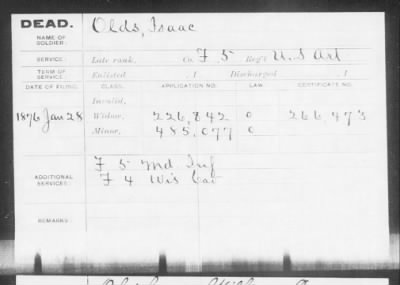 DEAD. Olds, Isaac
NAME OF SOLDIER:
SERVICE: Late rank, Co. F 5 Reg't U.S Art
TERM OF SERVICE: Enlisted , 1 Discharged , 1
DATE OF FILING. CLASS. APPLICATION NO. LAW. CERTIFICATE NO.
Invalid,
1876 Jan 28 Widow, 226,842 0 266,473
Minor, 485,077 0
ADDITIONAL SERVICES: F 5 Md Inf
F 4 Wis Cav
REMARKS: